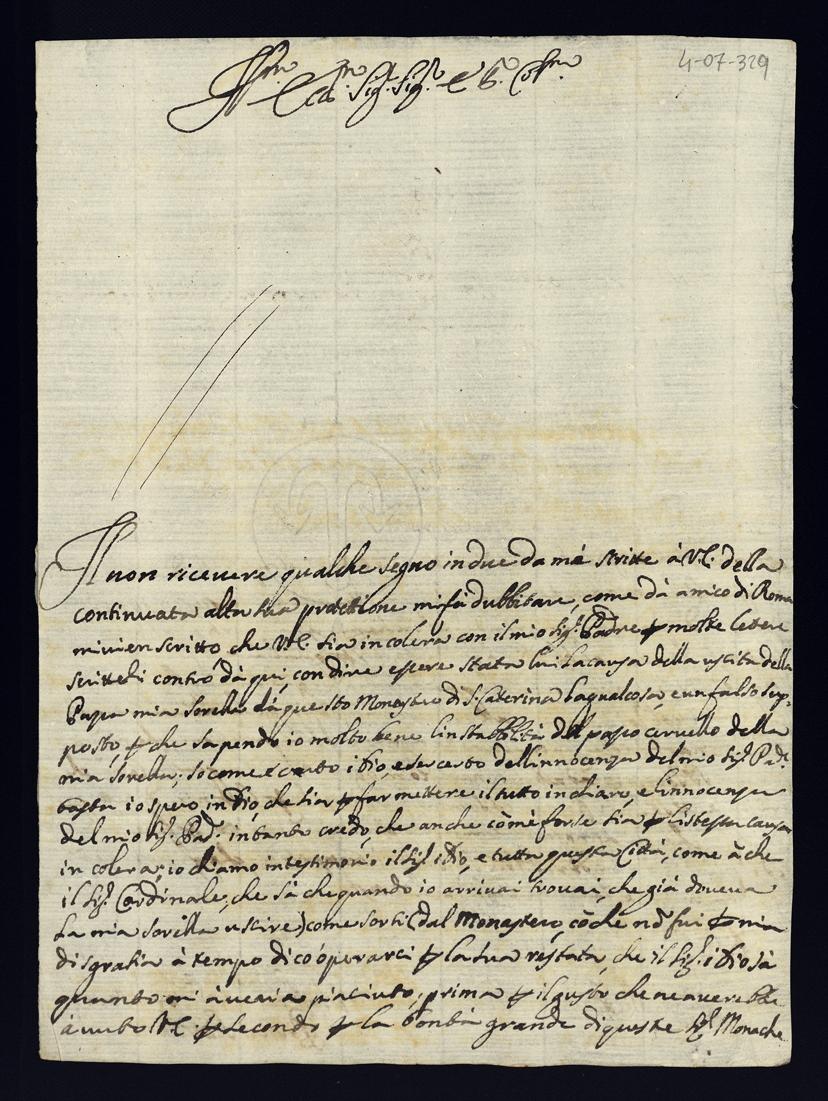 4-07-329
Ill.mo Ecc.mo Sig.r Sig.r e P.ron Col.mo
Il non ricevere qualche segno in due da mè scritte à V.E. della
continuata alta sua protettione mi fà dubbitare, come dà amico di Roma
mi vien scritto che V.E. sia in colera con il mio Sig.r Padre p molte lettere
scritteli contro dà qui, con dire essere stata lui la causa della uscita della
mia sorella dà questo Monastero di S. Caterina laqualcosa, è un falso sup-
posto, p che sapendo io molto bene l'instabbilità del cervello della
mia sorella; so come è certo idio, esser certo dell'innocenza del mio Sig.r Pad.e
basta io spero in Dio, che sia p far mettere il tutto in chiaro, e l'innocenza
del mio Sig.r Pad.e in tanto credo, che anche cõ mè forse sia p l'istessa causa
in colera; io chiamo in testimonio il Sig.r idio, e tutta questa Città, come à che
il Sig.r Cardinale, che sà che quando io arrivai trovai, che già doveva
la mia sorella uscire) come sortì (dal Monastero, cõ che nõ fui p mia
disgratia à tempo di coóperarci p la sua restata, che il Sig.r idio sà
quanto mi àveria piaciuto, prima p il gusto che ne averebbe
àvuto V.E. p secondo p la bontà grande di queste Sig.e Monache